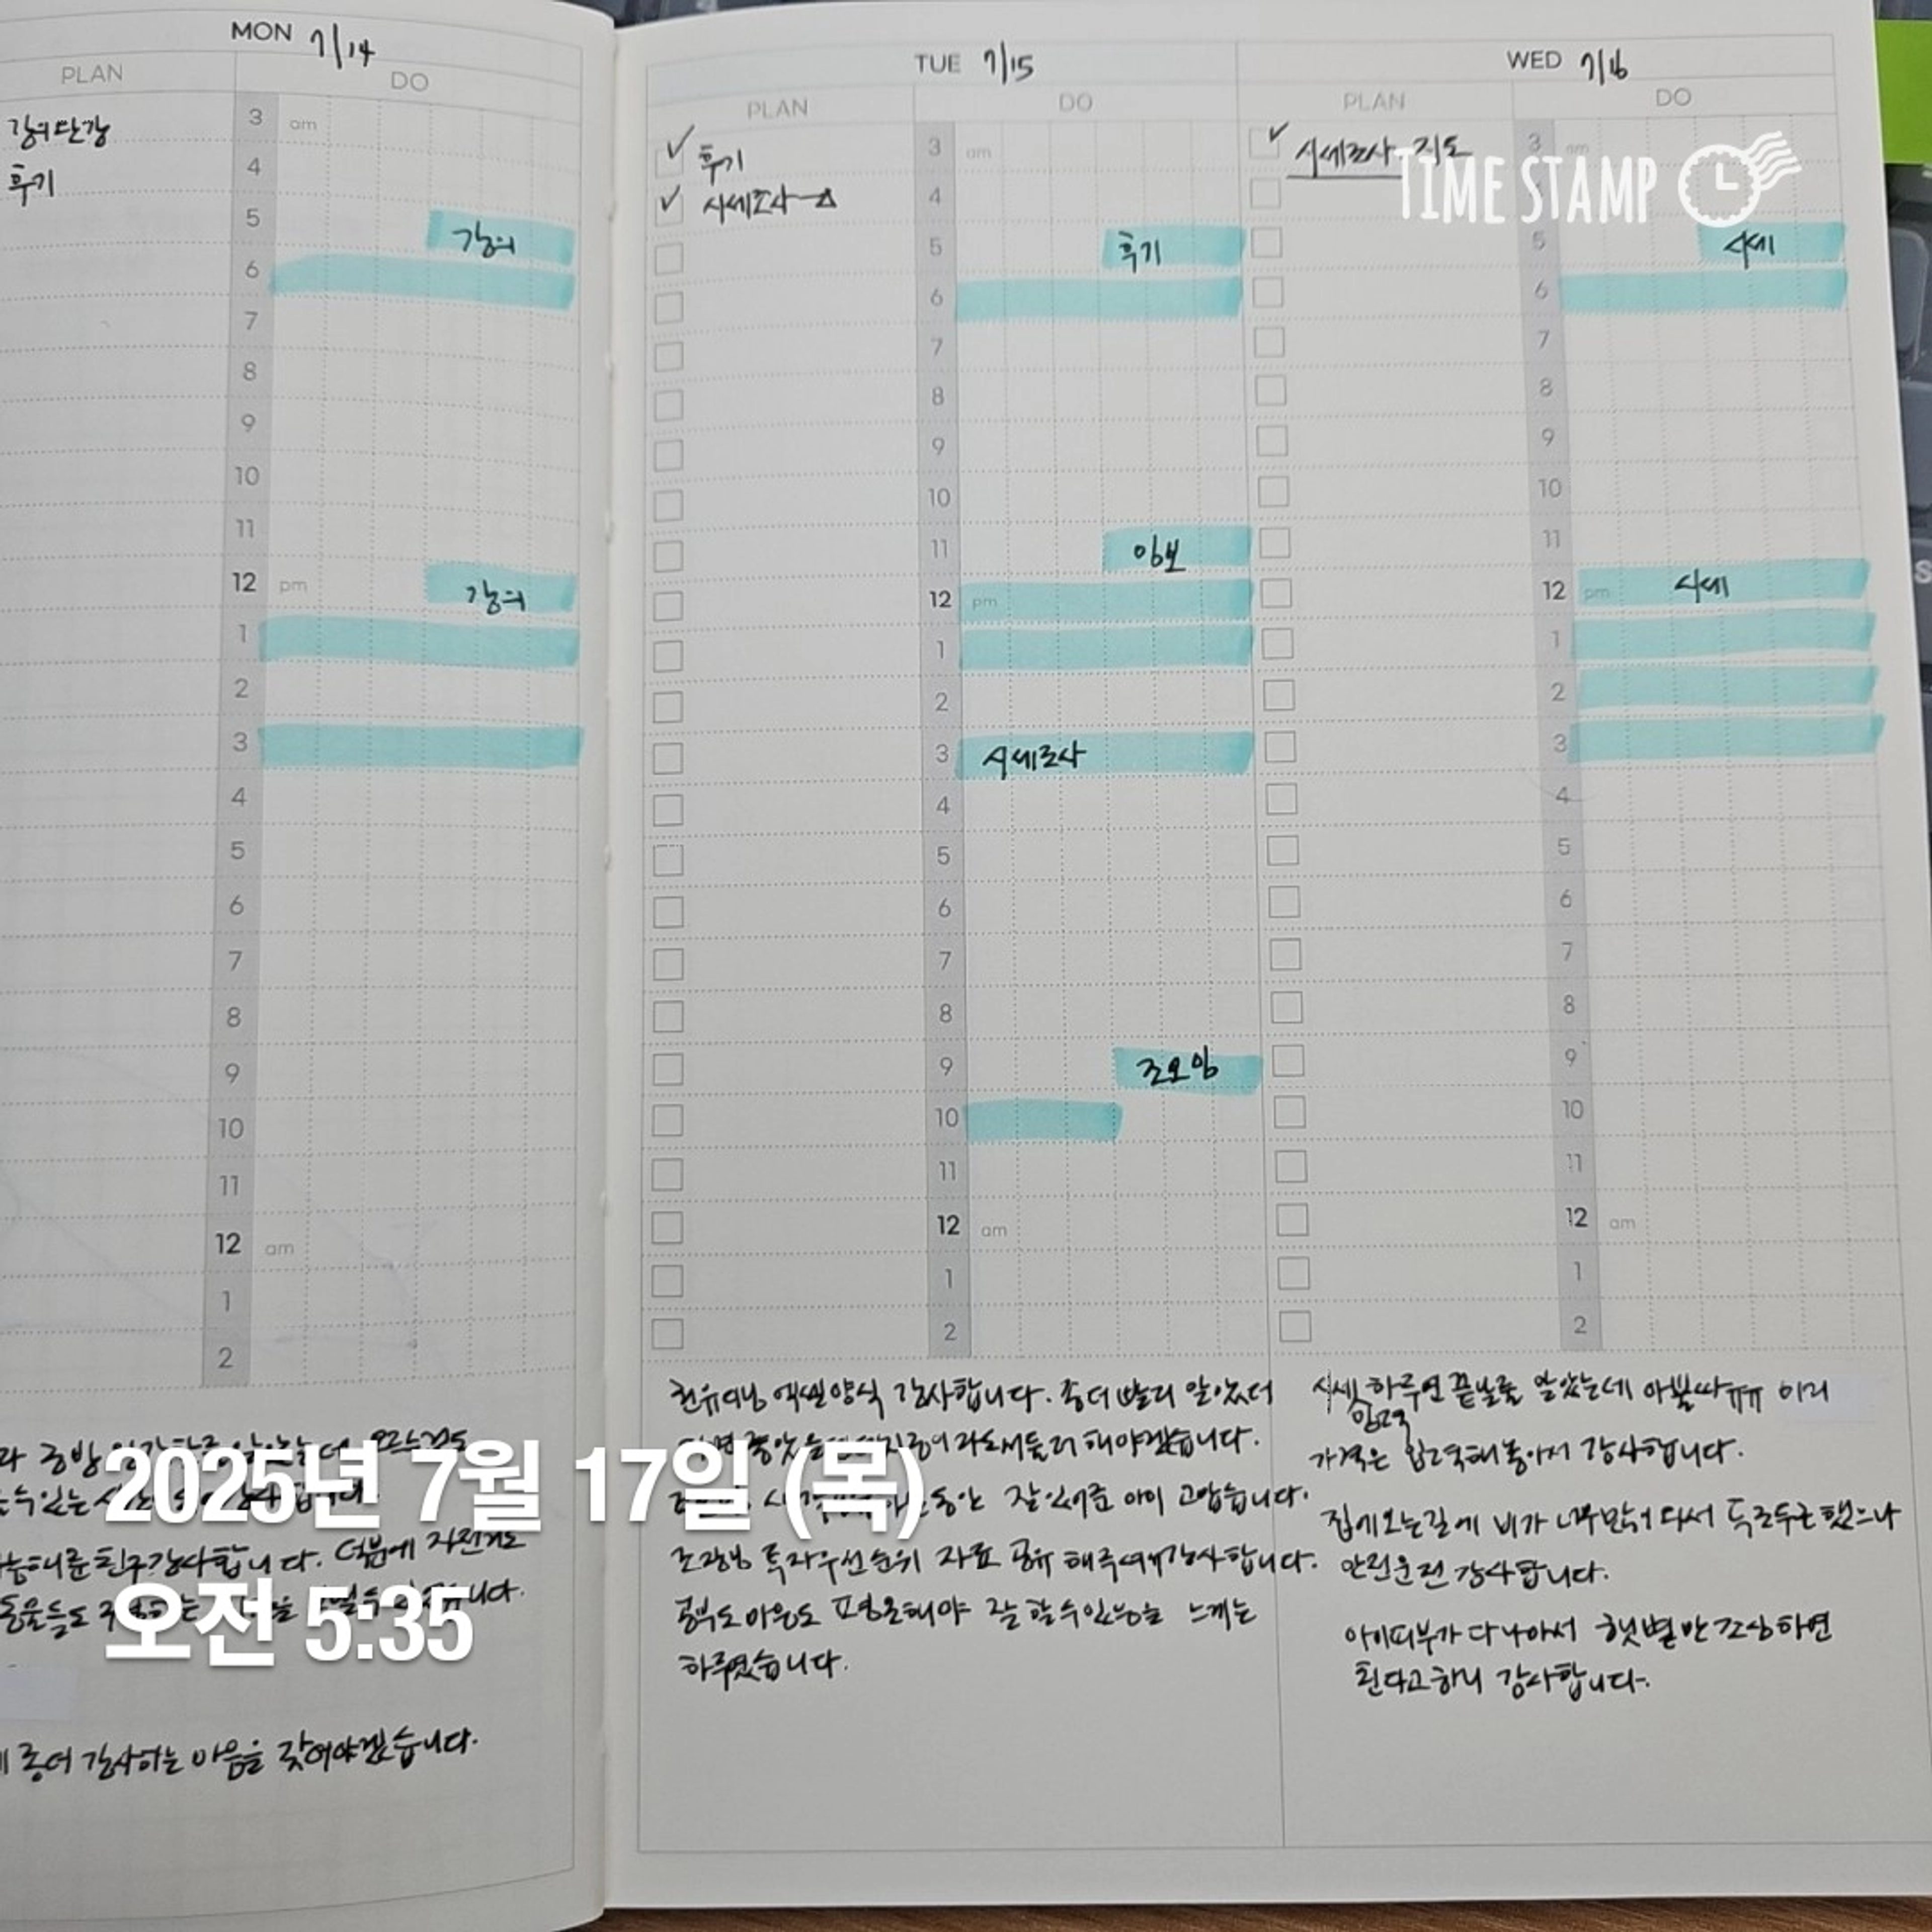 MON 7/14
PLAN
DO
강의 단강
후기
3 am
4
5 강의
6
7
8
9
10
11
12 pm 강의
1
2
3
4
5
6
7
8
9
10
11
12 am
1
2
감사합니다. 덕분에 자전거도
좀더 감사하는 마음을 갖어야겠습니다.
TUE 7/15
PLAN
DO
✓ 후기
✓ 시세조사 → △
3 am
4
5 후기
6
7
8
9
10
11 임보
12 pm
1
2
3 시세조사
4
5
6
7
8
9 조모임
10
11
12 am
1
2
엑셀양식 감사합니다. 좀더 빨리 알았더
서둘러 해야겠습니다.
동안 잘 있어준 아이 고맙습니다.
조장님 투자우선순위 자료 공유 해주셔서 감사합니다.
공부도 마음도 평온해야 잘 할수있음을 느끼는
하루였습니다.
WED 7/16
PLAN
DO
✓ 시세조사 지도
3 am
5 시세
6
7
8
9
10
11
12 pm 시세
1
2
3
4
5
6
7
8
9
10
11
12 am
1
2
시세 입력 하루면 끝날줄 알았는데 아뿔싸ㅠㅠ 미리
가격은 입력해놓아서 감사합니다.
집에 오는길에 비가 너무많이 와서 두근두근 했으나
안전운전 감사합니다.
아이피부가 다 나아서 햇볕만 조심하면
된다고하니 감사합니다.
TIME STAMP
2025년 7월 17일 (목)
오전 5:35